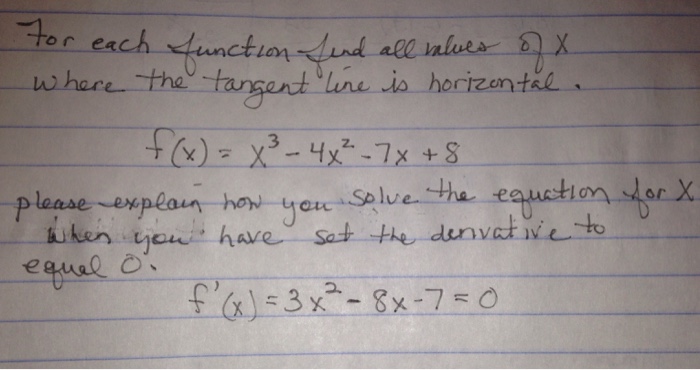 For each function find all values of x
where the tangent line is horizontal.
f(x) = x³ - 4x² - 7x + 8
please explain how you solve the equation for x
when you have set the derivative to
equal 0.
f'(x) = 3x² - 8x - 7 = 0